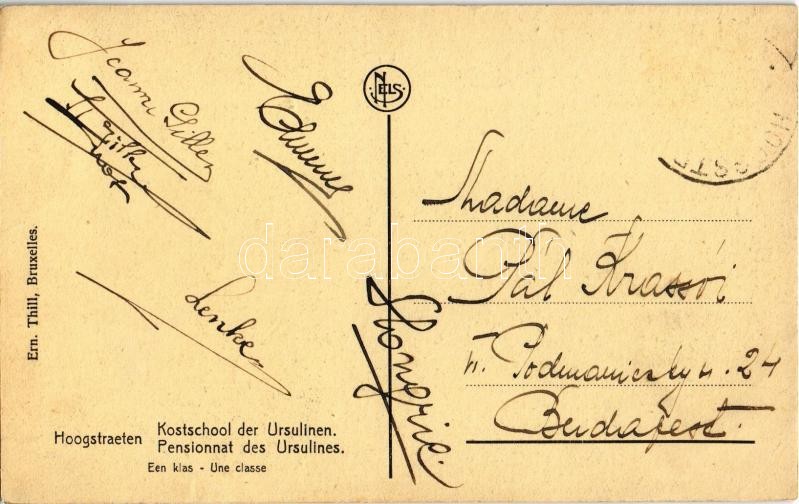 Jeanne Gilles
Lenke
Ern. Thill, Bruxelles.
Hoogstraeten
Kostschool der Ursulinen.
Pensionnat des Ursulines.
Een klas - Une classe
NELS
Madame
Pál Krassói
Podmaniczky u. 24
Budapest.
Hongrie.
darabanth